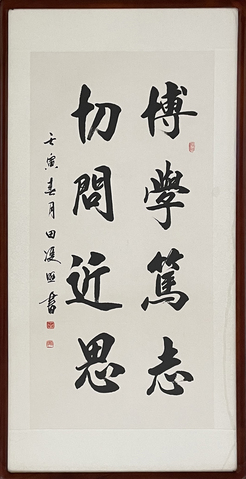 博學篤志
切問近思
壬寅春月田浚熙書